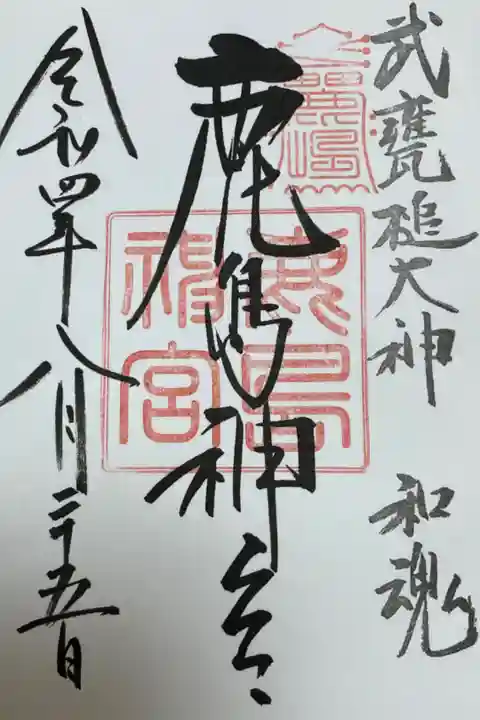 武甕槌大神 和魂
鹿嶋
鹿島神宮
鹿島神宮
令和四年八月二十五日